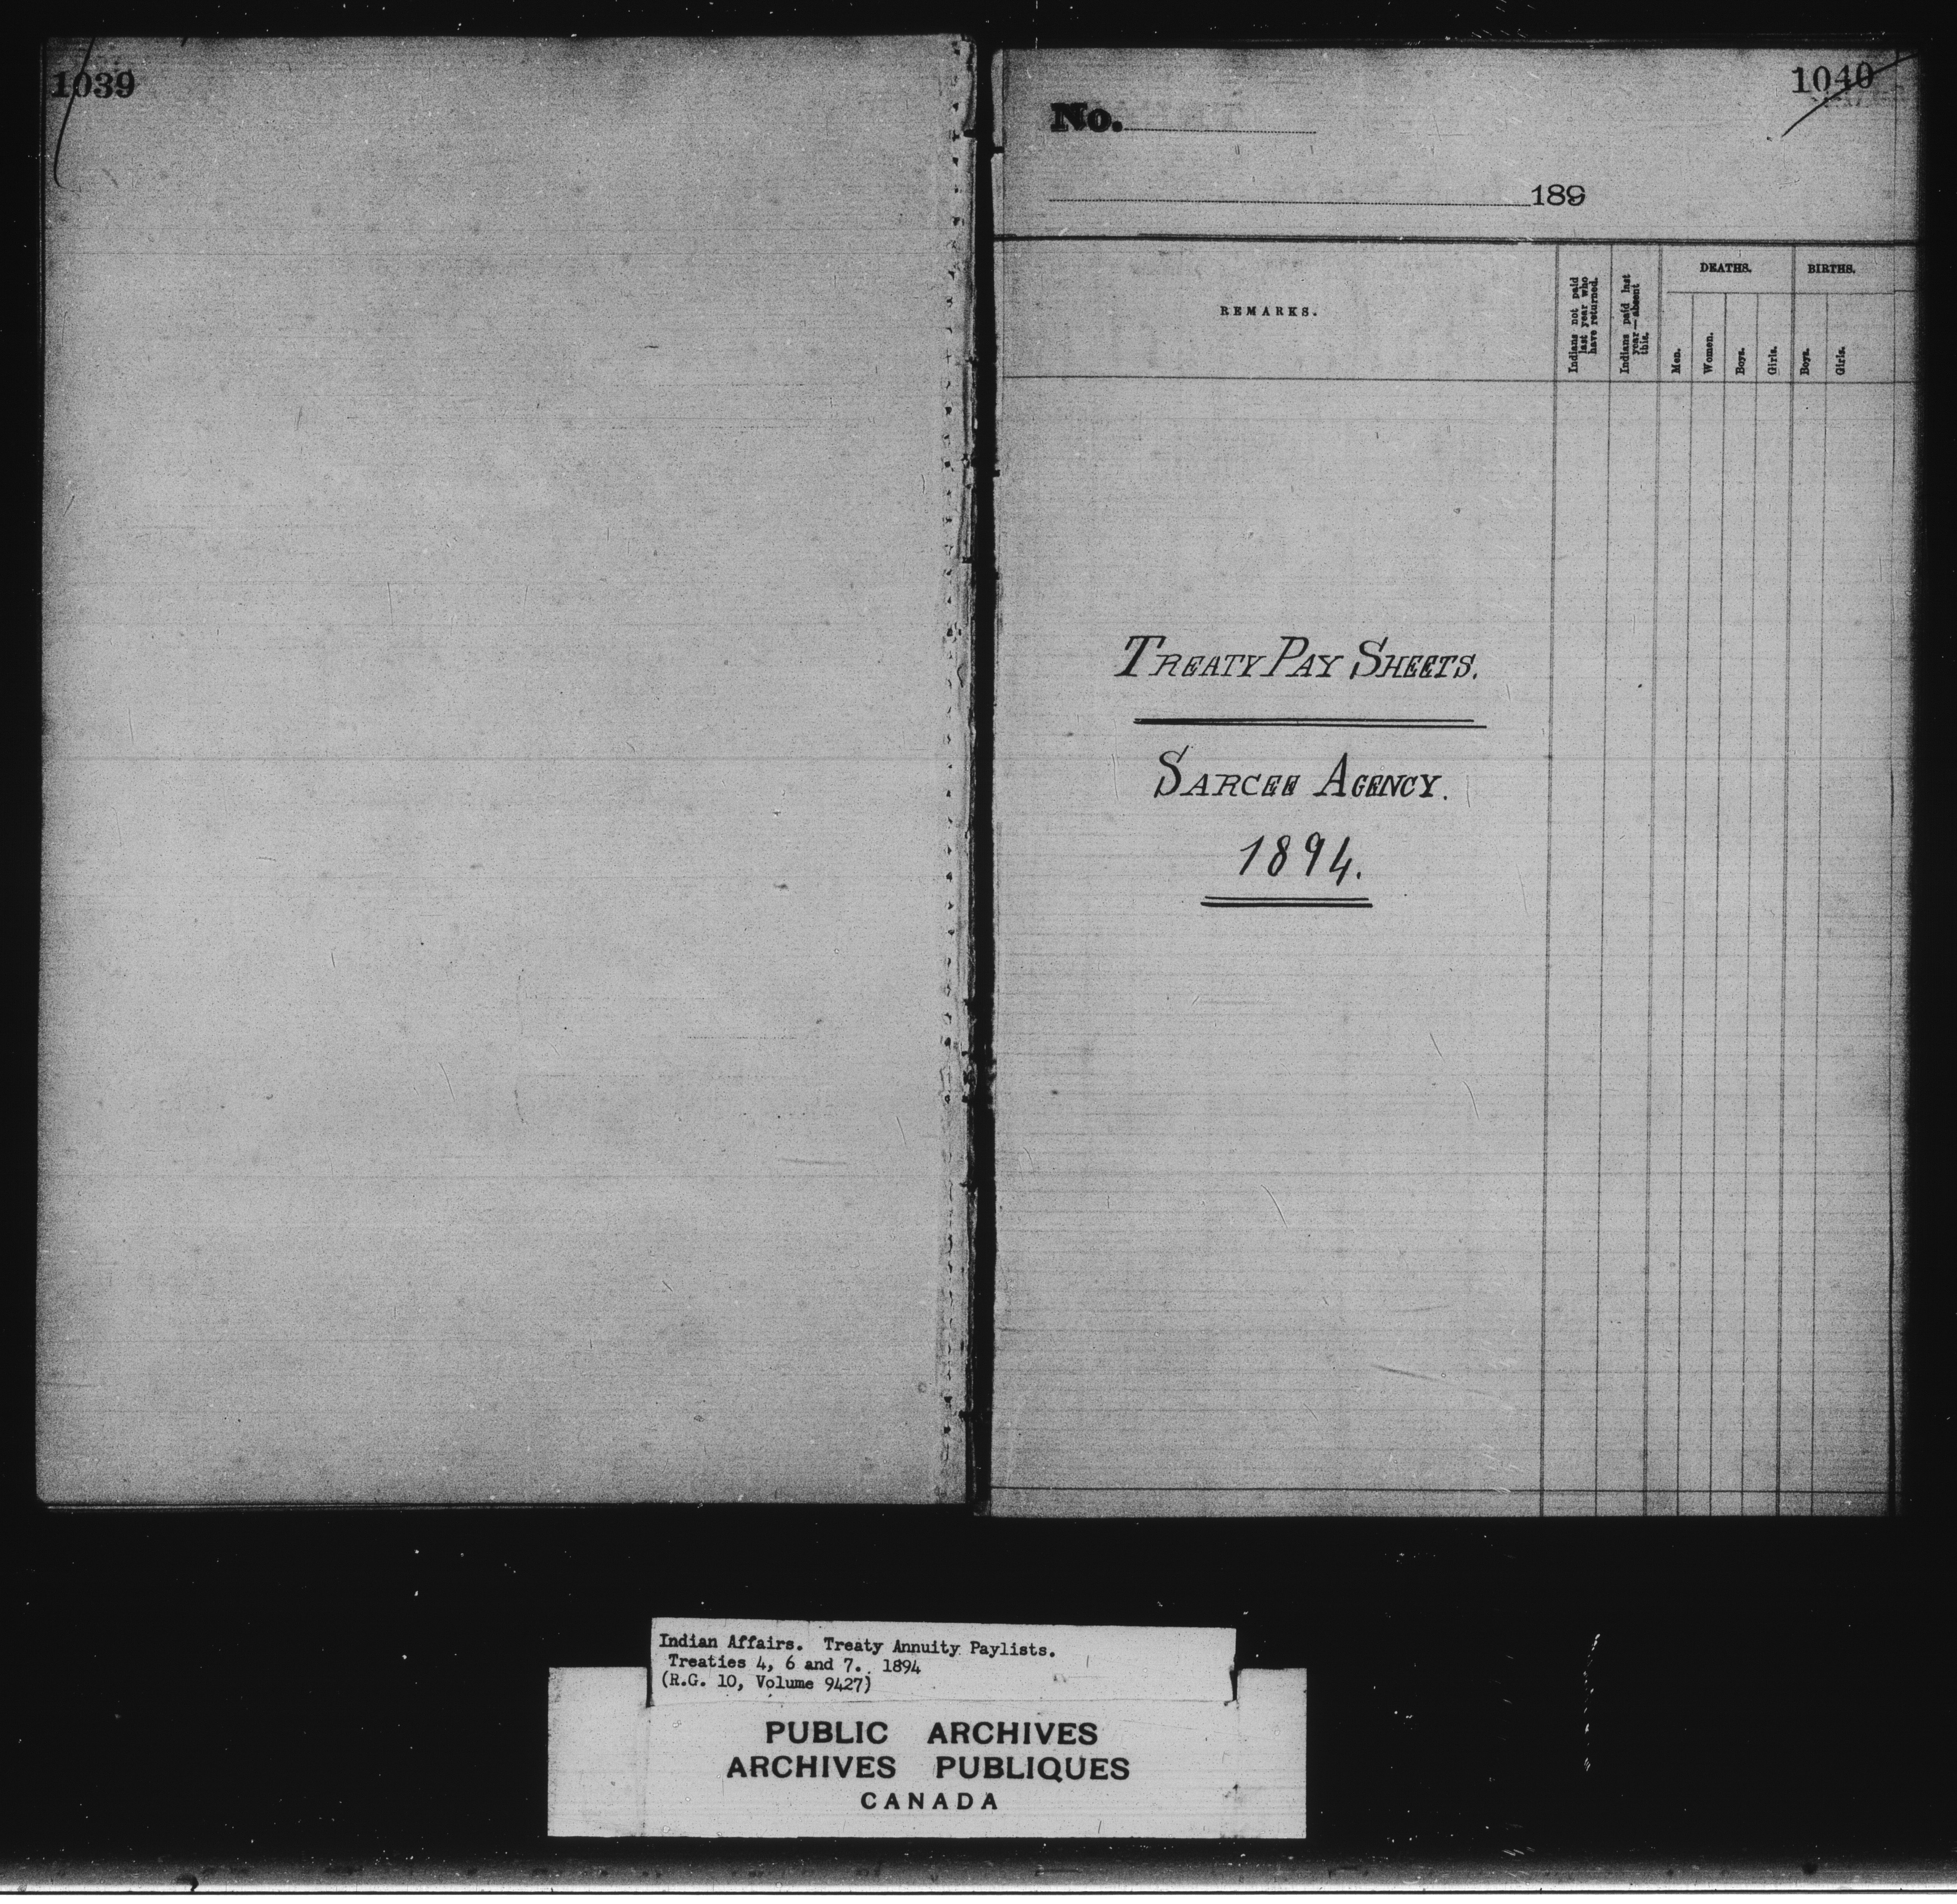 1039
1040
No.
189
REMARKS.
Indians not paid
last year who
have returned.
Indians paid last
year—absent
this.
DEATHS.
Men.
Women.
Boys.
Girls.
BIRTHS.
Boys.
Girls.
TREATY PAY SHEETS.
SARCEE AGENCY.
1894.
Indian Affairs. Treaty Annuity Paylists.
Treaties 4, 6 and 7. 1894
(R.G. 10, Volume 9427)
PUBLIC ARCHIVES
ARCHIVES PUBLIQUES
CANADA